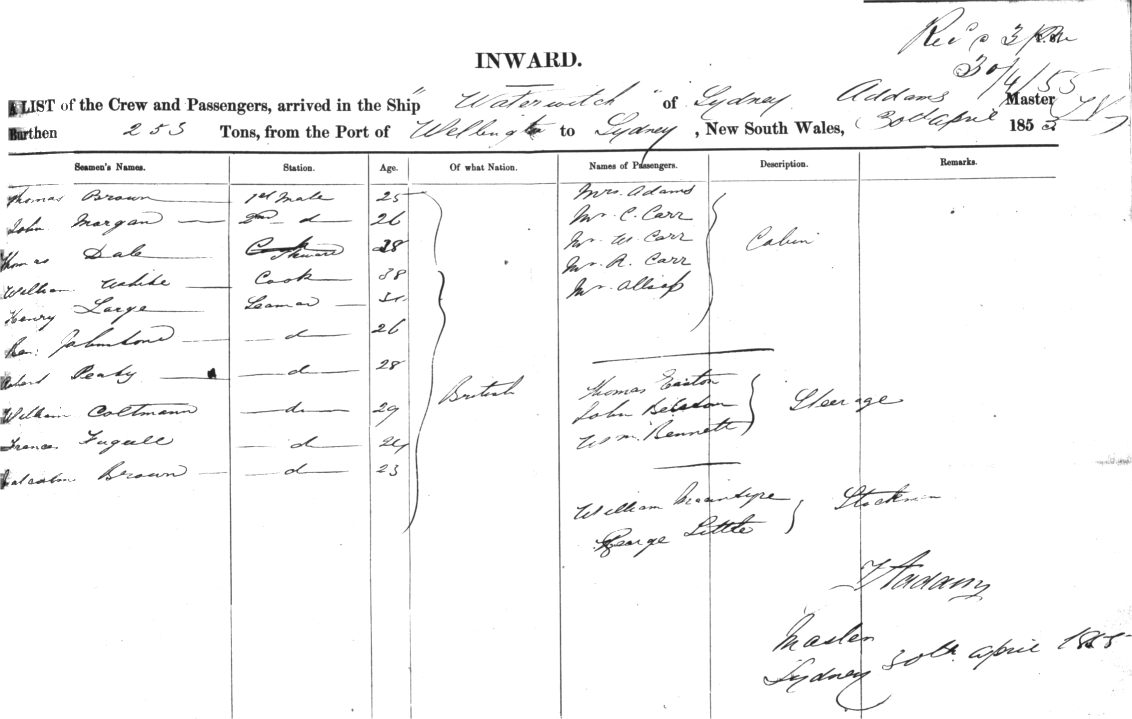 Rec'd 3 P.M.
30/4/55
INWARD.
A LIST of the Crew and Passengers, arrived in the Ship "Waterwitch" of Sydney Addams Master
Burthen 253 Tons, from the Port of Wellington to Sydney, New South Wales, 30th April 1855
Seamen's Names. Station. Age. Of what Nation. Names of Passengers. Description. Remarks.
Thomas Brown 1st Mate 25 Mrs. Adams
John Morgan 2nd d 26 Mr C. Carr
Thomas Dale Steward 28 Mr W. Carr Cabin
William White Cook 38 Mr. R. Carr
Henry Large Seaman Mr. Allsop
Ben: Johnstone d 26
Richard Peaby d 28 British Thomas Easton
William Coltmann d 29 John Steerage
Francis d 24 Wm. Bennett
Malcolm Brown d 23
William Macintyre Stockmen
George Little
Adams
Master
Sydney 30th April 1855